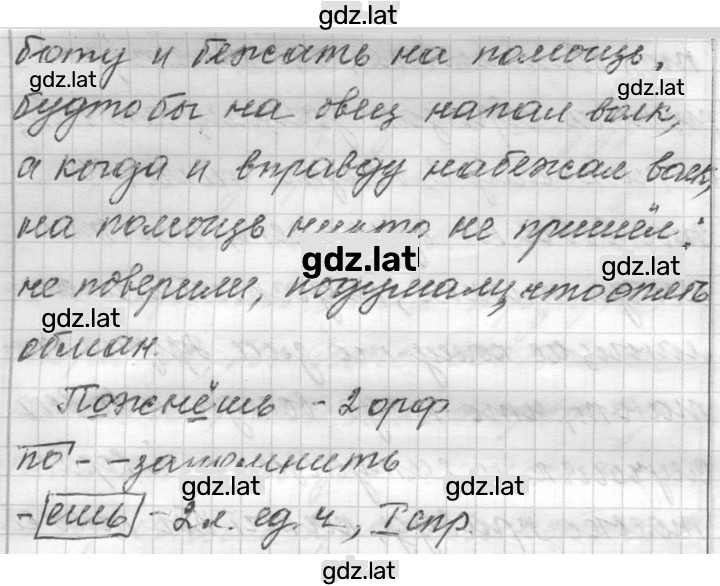 gdz.lat
бюту и бежать на помощь,
gdz.lat gdz.lat
будто бы на овец напал волк,
а когда и вправду набежал волк,
на помощь никто не пришёл:
gdz.lat gdz.lat
не поверили, подумали, что опять
gdz.lat
обман.
Пожнёшь - 2 орф
по- - запомнить
gdz.lat gdz.lat
-ешь - 2 л. ед. ч, I спр.
gdz.lat